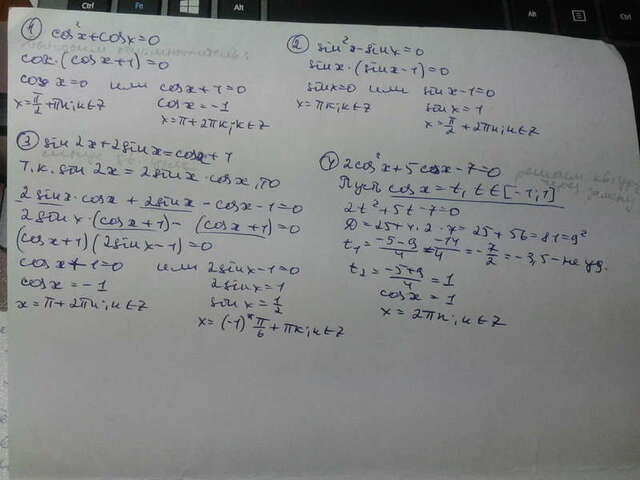 ① cos²x+cosx=0
cosx·(cosx+1)=0
cosx=0 или cosx+1=0
x=π/2+πn; n∈Z cosx=-1
x=π+2πk; k∈Z
② sin²x-sinx=0
sinx·(sinx-1)=0
sinx=0 или sinx-1=0
x=πk; k∈Z sinx=1
x=π/2+2πn; n∈Z
③ sin2x+2sinx=cosx+1
Т.к. sin2x=2sinx·cosx, то
2sinx·cosx+2sinx-cosx-1=0
2sinx·(cosx+1)-(cosx+1)=0
(cosx+1)(2sinx-1)=0
cosx+1=0 или 2sinx-1=0
cosx=-1 2sinx=1
x=π+2πn; n∈Z sinx=1/2
x=(-1)ᵏπ/6+πk; k∈Z
④ 2cos²x+5cosx-7=0
Пусть cosx=t, t∈[-1;1]
2t²+5t-7=0
D=25+4·2·7=25+56=81=9²
t₁=(-5-9)/4=-14/4=-7/2=-3,5-не уд.
t₂=(-5+9)/4=1
cosx=1
x=2πn; n∈Z
Ctrl
Fn
Alt
Alt
Ctrl